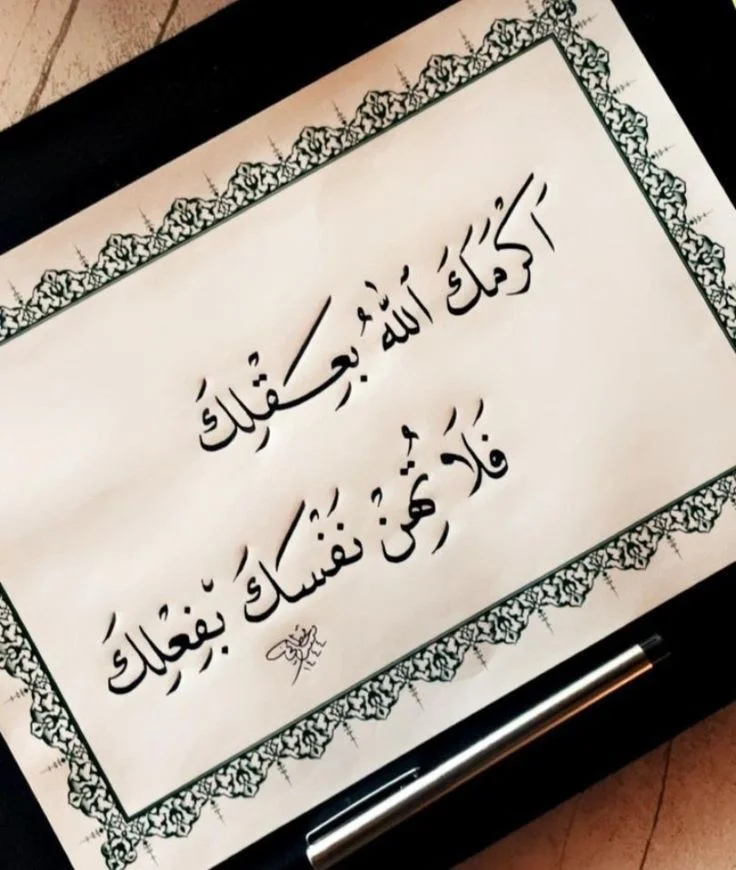 اَكْرَمَكَ اللّٰهُ بِعَقْلِكَ
فَلَا تُهِنْ نَفْسَكَ بِفِعْلِكَ